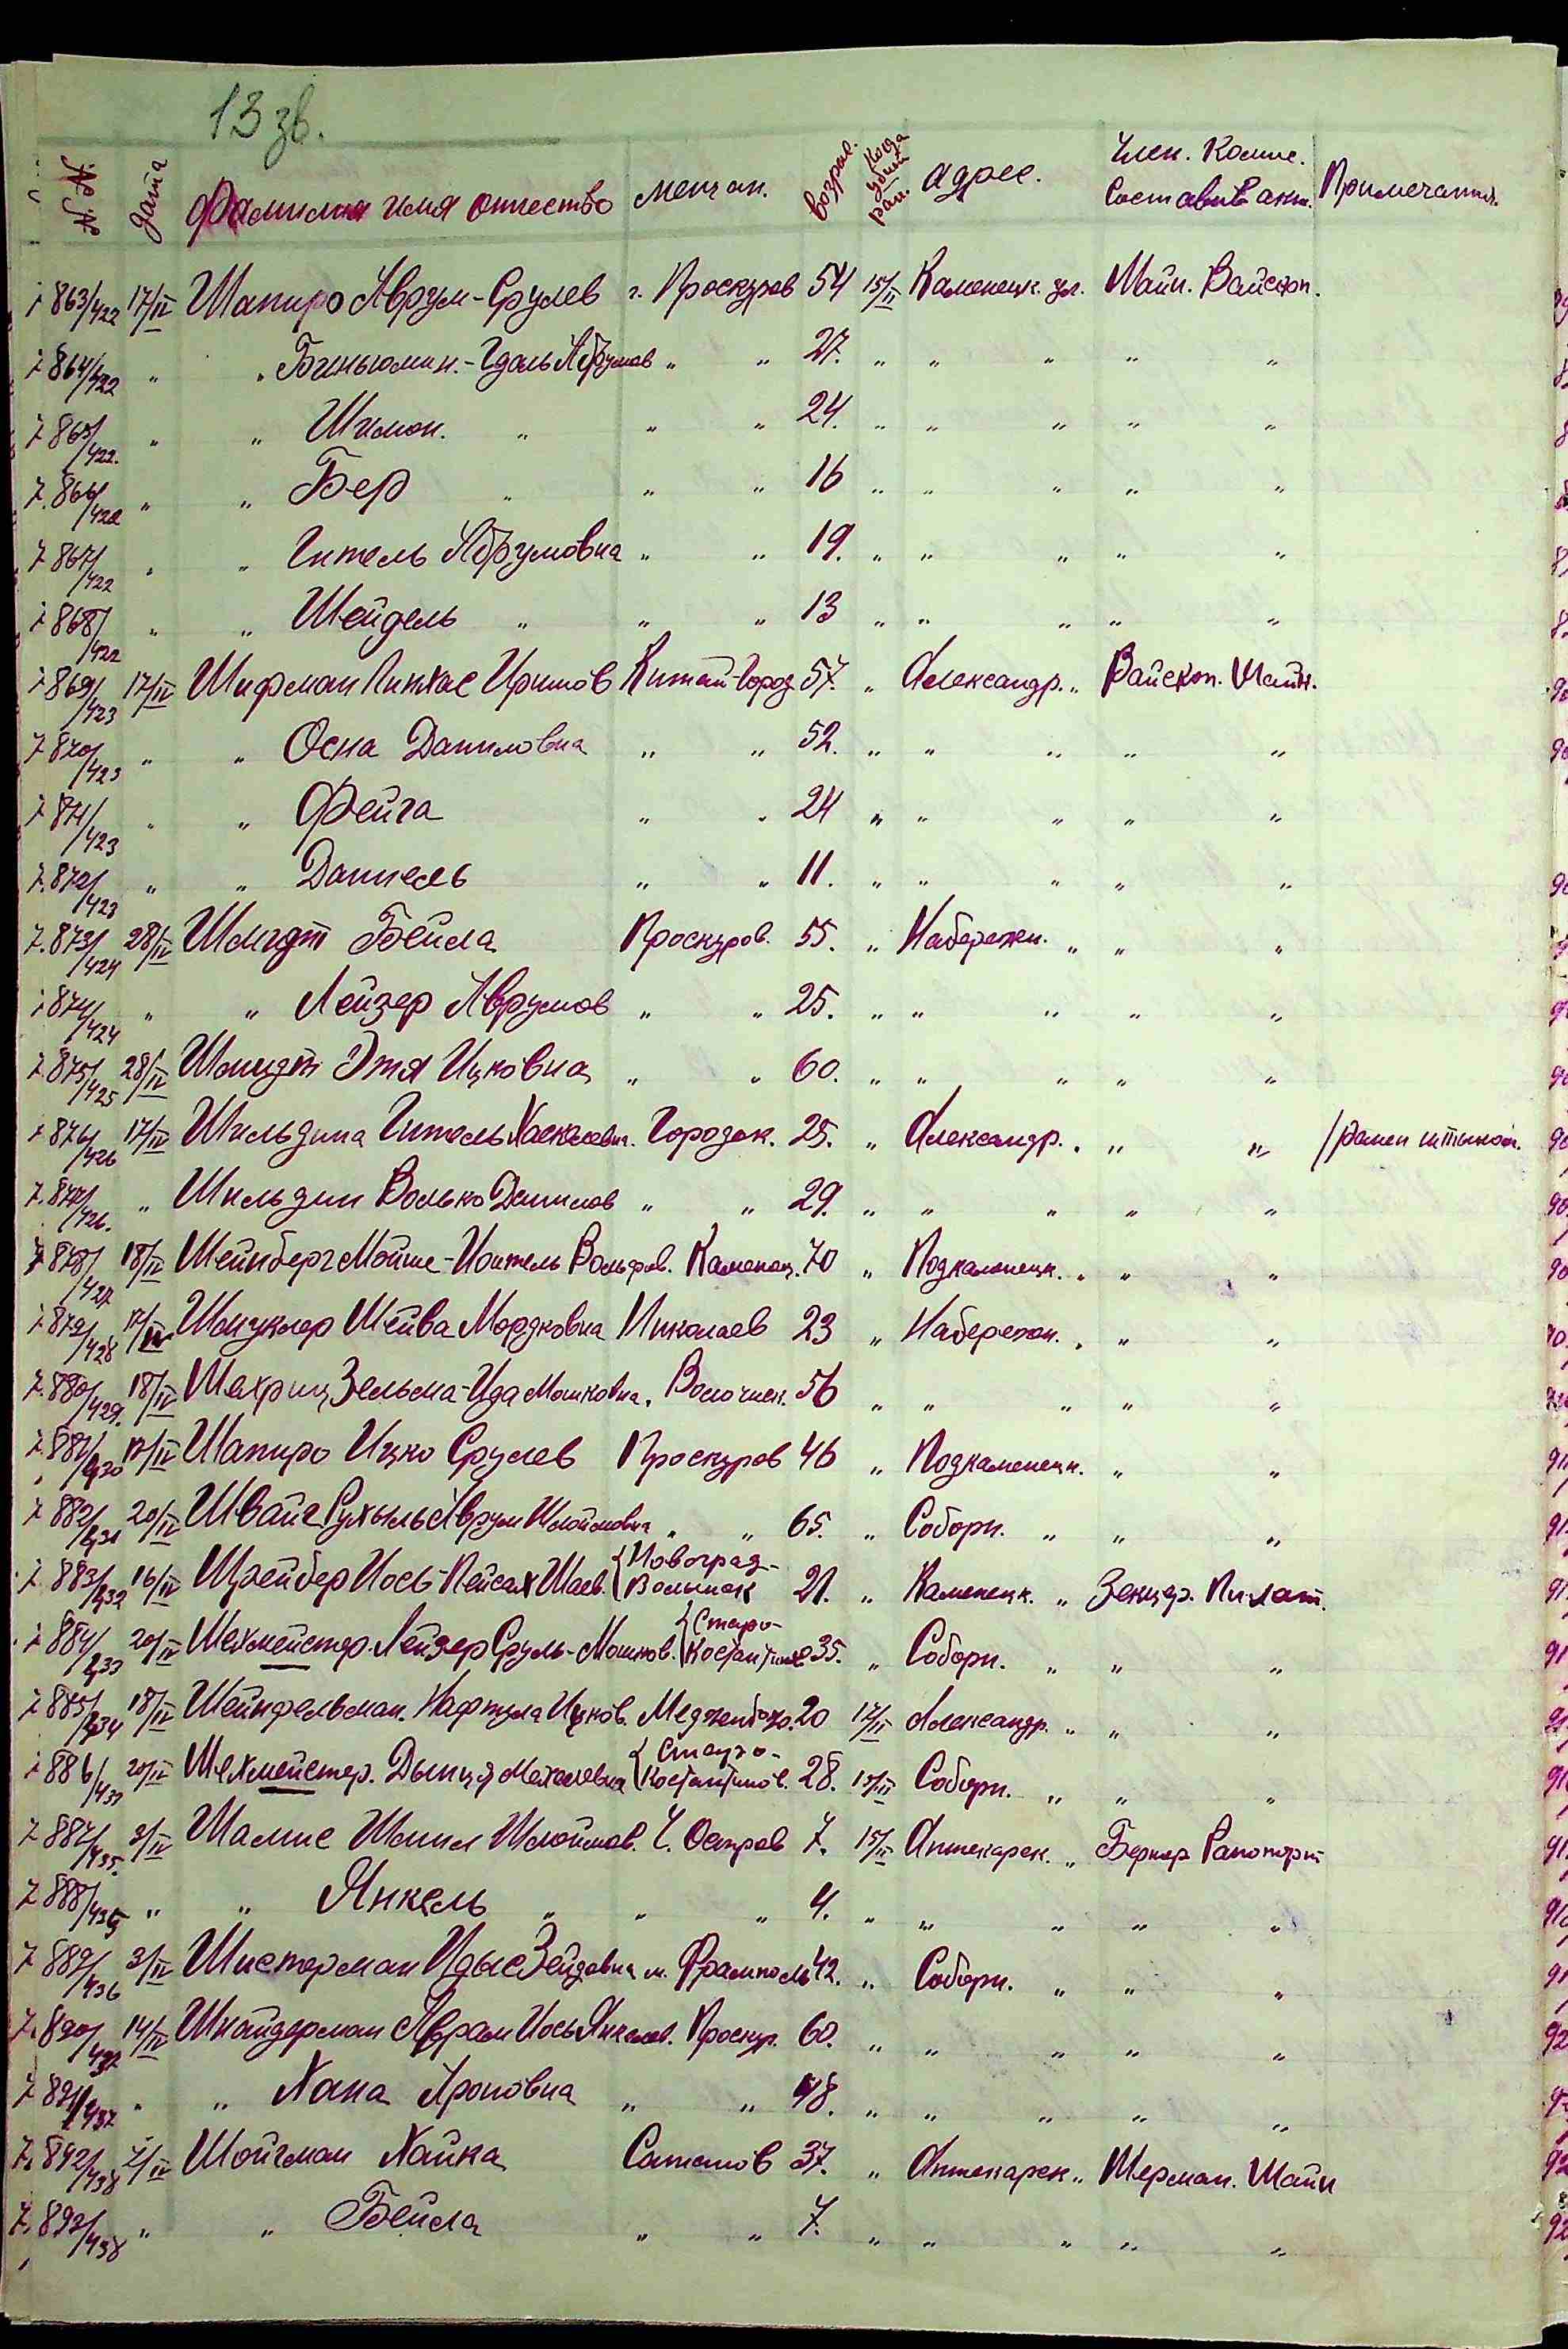 13 зв.
№№ дата Фамилия имя отчество мещан. возрас. Когда убит ран. адрес. Член. Комис. Составив акт. Примечания.
863/422 17/IV Шапиро Аврум-Срулев г. Проскуров 54 15/II Каменецк. ул. Шайн. Вайскоп.
864/422 " " Биньюмин.-Гдаль Аврумов " " 27. " " " " "
865/422. " " Шимон. " " " 24. " " " " "
866/422 " " Бер " " " 16 " " " " "
867/422 " " Гитель Аврумовна " " 19. " " " " "
868/422 " " Шейдель " " " 13 " " " " "
869/423 17/IV Шифман Пинхас Иримов Китай-Город 57. " Александр. " Вайскоп. Шайн.
870/423 " " Осна Даниловна " " 52. " " " " "
871/423 " " Фейга " " 24 " " " " "
872/423 " " Даниель " " 11. " " " " "
873/424 28/IV Шмидт Бейла Проскуров. 55. " Набережн. " " "
874/424 " " Лейзер Аврумов " " 25. " " " " "
875/425 28/IV Шмидт Этя Ицковна " " 60. " " " " "
876/426 17/IV Шильдина Гитель Хаскелевна. Городок. 25. " Александр. " " " /ранен штыком.
877/426. " Шильдин Волько Данилов " " 29. " " " " "
878/427 18/IV Шейнберг Мойше- Вольфов. Каменец. 70 " Подкаменецк. " " "
879/428 17/IV Шмуклер Шейва Мордковна Николаев 23 " Набережн. " " "
880/429. 18/IV Шехриц Зельма-Ида Мошковна. Волочиск. 56 " " " " "
881/430 17/IV Шапиро Ицко Срулев Проскуров 46 " Подкаменецк. " "
882/431 20/IV Швайг Рухыль Аврум Шлоймовна " " 65. " Соборн. " " "
883/432 16/IV Шрейбер Иось-Пейсах Шаев. {Новоград-Волынск 21. " Каменецк. " Зекцер. Пилат.
884/433 20/IV Шехмейстер. Лейзер Сруль-Мошков. {Старо-Костантинов 35. " Соборн. " " "
885/434 18/IV Шейнфельман. Нафтула Ицков. Меджибож. 20 17/II Александр. " " "
886/433 20/IV Шехмейстер. Дынця Мехелевна {Старо-Костантинов. 28. 15/II Соборн. " " "
887/435. 3/IV Шамис Шмил Шлоймов. Ч. Остров 7. 15/II Аптекарск. " Бернер Рапопорт
888/435 " " Янкель " " " 4. " " " " "
889/436 3/IV Шистерман Идыс Зейдовна м. Фрамполь 42. " Соборн. " " "
890/437 14/IV Шнайдерман Аврам Иось Янкелев. Проскур. 60. " " " " "
891/437 " " Хана Ароновна " " 48. " " " " "
892/438 4/IV Шойхман Хайка Сатанов 37. " Аптекарск. " Шерман. Шайн
892/438 " " Бейла " " 7. " " " " "